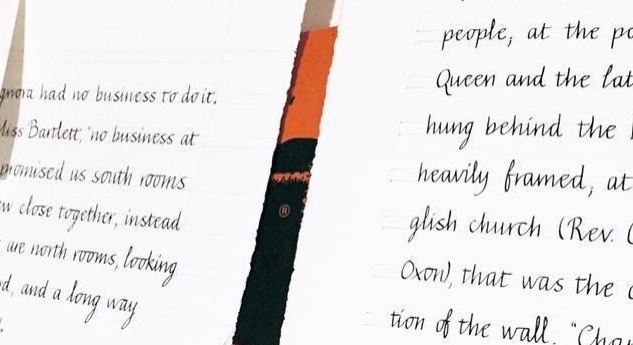 had no business to do it.
Bartlett, "no business at
promised us south rooms
close together, instead
are north rooms, looking
and a long way
®
people, at the
Queen and the
hung behind the
heavily framed, at
glish church (Rev.
Oxon), that was the
tion of the wall. "